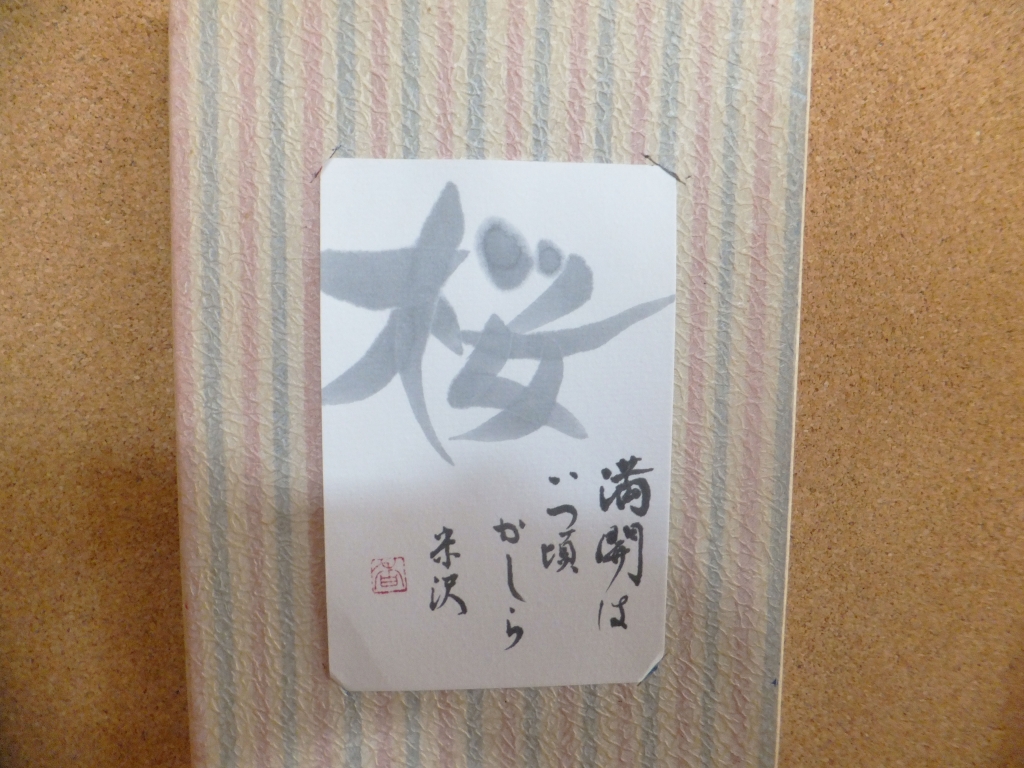 桜
満開は
いつ頃
かしら
米沢